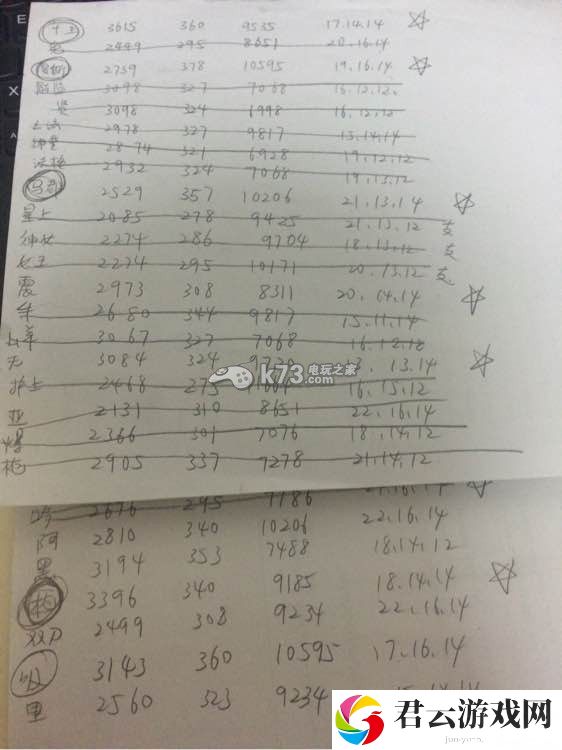 十上 3615 360 9535 17.14.14 ☆
2499 295 8651 20.16.14
2739 378 10595 19.16.14 ☆
3098 327 7068 15.12.12
3098 324 6998 16.12.12
2978 327 9817 15.14.14
2874 321 6928 19.12.12
2932 324 7068 19.13.12
2529 357 10206 21.13.14 ☆
星上 2085 278 9425 21.13.12 支
绅女 2274 286 9704 18.13.12 支
女王 2274 295 10171 20.13.12 支
震 2973 308 8311 20.14.14 ☆
2680 344 9817 15.11.14
3067 327 7068 16.12.12
无 3084 324 13.14 ☆
护士 2468 275 16.15.12
亚 2131 310 8651 22.16.14
2366 301 7076 18.14.12
枪 2905 337 7278 21.14.12
k73 电玩之家
.com
2676 295 7186 ☆
阿 2810 340 10206 22.16.14
黑 3194 353 7488 18.14.12
3396 340 9185 18.14.14 ☆
双刀 2499 308 9234 22.16.14
3143 360 10595 17.16.14
里 2560 323 9234
君云游戏网